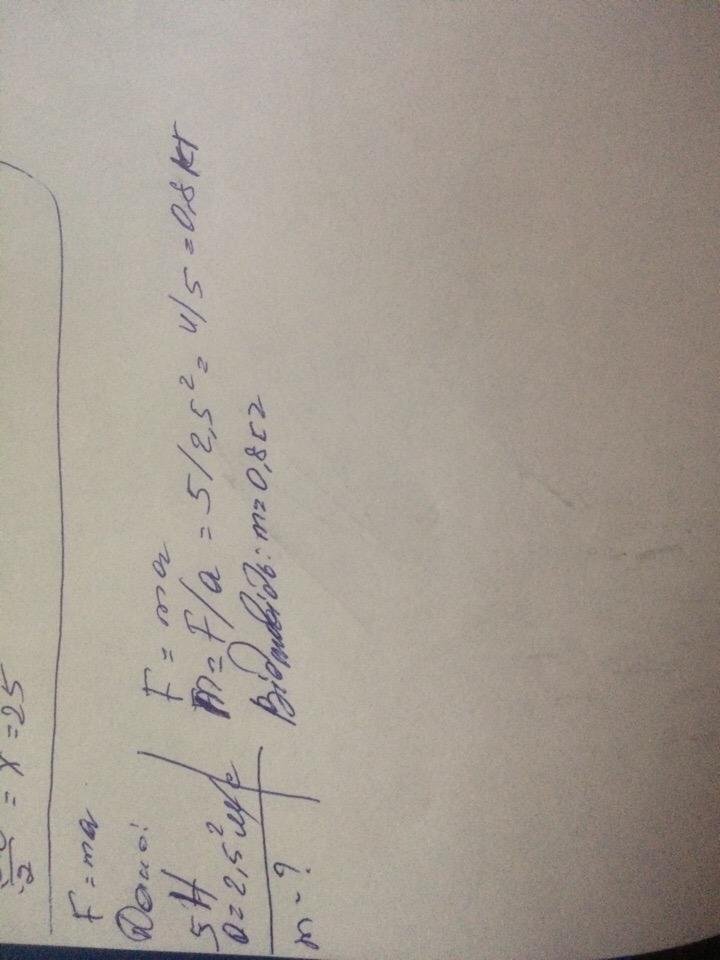 = x = 25
2
F = ma
Дано:
5 Н
a = 2,5² м/с
m - ?
F = ma
m = F/a = 5/2,5² = 4/5 = 0,8 кг
Відповідь: m = 0,8 кг